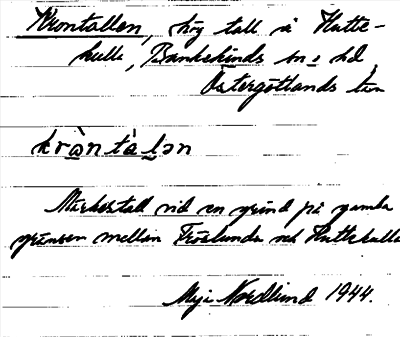 Krontallen, hög tall å Hutte-
kulla, Bankekinds sn o hd,
Östergötlands län
kròntàlən
Märkestall vid en grind på gamla
gränsen mellan Fröslunda och Huttekulla
Nordlind 1944.